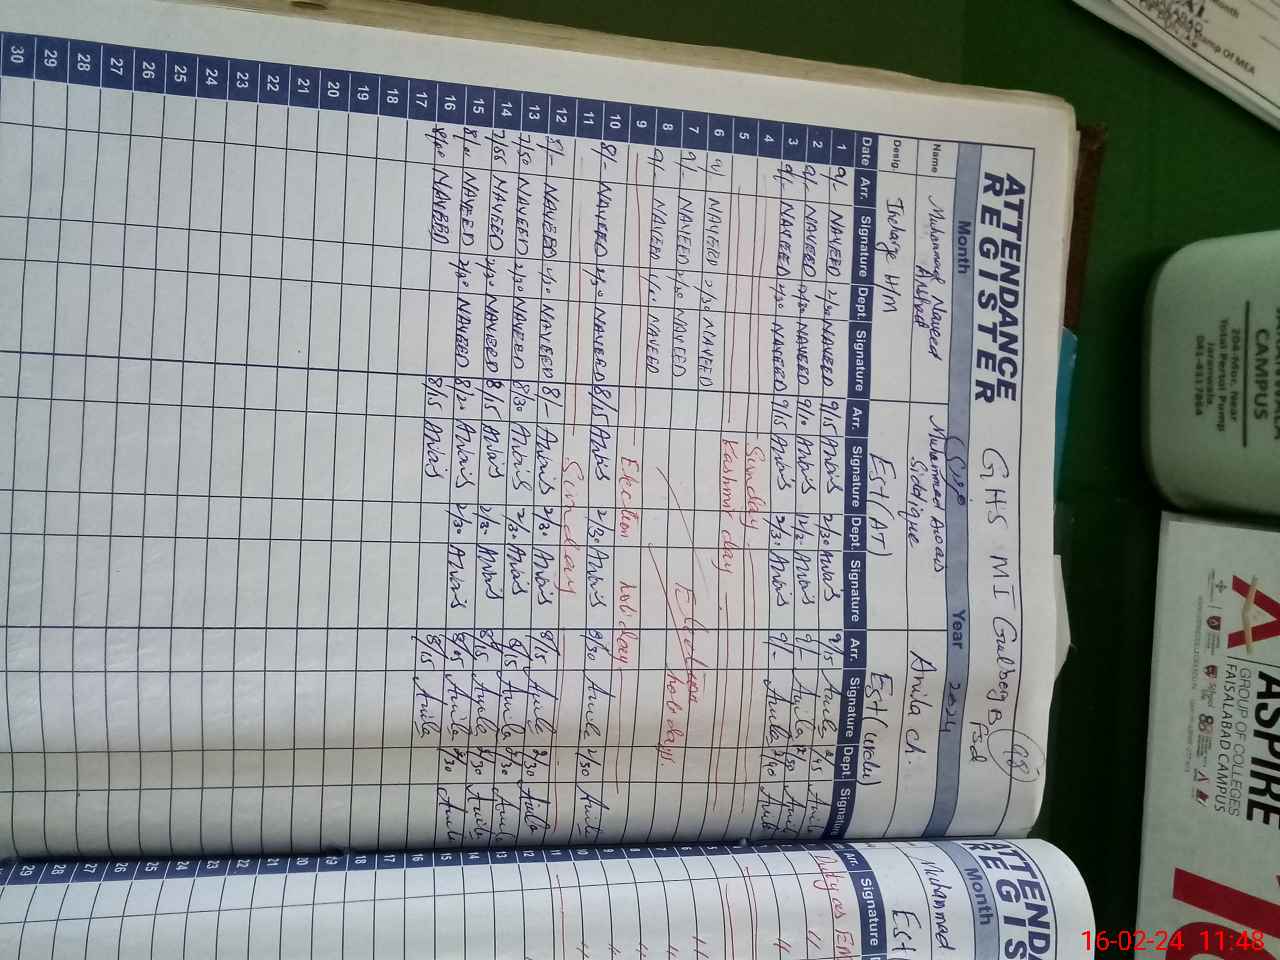 ATTENDANCE
REGISTER
GHS MI Gulberg B
Fsd
98
Month
Year 2024
Name Muhammad Naveed Arshad Muhammad Awais Siddique Anila ch.
Desig. Incharge H/M Est (AT) Est (Urdu)
Date Arr. Signature Dept. Signature Arr. Signature Dept. Signature Arr. Signature Dept. Signature
1 9/- NAVEED 2/30 NAVEED 9/15 Awais 2/30 Awais 9/15 Anila 2/45 Anila
2 9/- NAVEED 2/30 NAVEED 9/10 Awais 12/2 Awais 9/- Anila 2/30 Anila
3 9/- NAVEED 2/30 NAVEED 9/15 Awais 2/30 Awais 9/- Anila 2/40 Anila
4 Sunday
5 Kashmir day
6 9/- NAVEED 2/30 NAVEED
7 9/- NAVEED 2/30 NAVEED Election holidays.
8 9/- NAVEED NAVEED
9 Election holiday
10 8/- NAVEED 2/30 NAVEED 8/15 Awais 2/30 Awais 8/30 Anila 2/30 Anila
11 Sunday
12 8/- NAVEED 2/30 NAVEED 8/- Awais 2/30 Awais 8/15 Anila 2/30 Anila
13 7/50 NAVEED 2/30 NAVEED 8/30 Awais 2/30 Awais 8/15 Anila 2/30 Anila
14 7/55 NAVEED 2/30 NAVEED 8/15 Awais 2/30 Awais 8/15 Anila 2/30 Anila
15 8/00 NAVEED 2/30 NAVEED 8/20 Awais 2/30 Awais 8/05 Anila 2/30 Anila
16 8/00 NAVEED 8/15 Awais 8/15 Anila
17
18
19
20
21
22
23
24
25
26
27
28
29
30
ATTENDA
REGIS
Month
Muhammad
Est
Arr. Signature
Duty as
1
5
6
7
8
9
10
11
12
13
14
15
16
17
18
19
20
21
22
23
24
25
26
27
28
29
Month
Camp Of MEA
CAMPUS
204-Mor, Near
Total Petrol Pump
Jaranwala
041-4117864
ASPIRE
GROUP OF COLLEGES
FAISALABAD CAMPUS
16-02-24 11:48